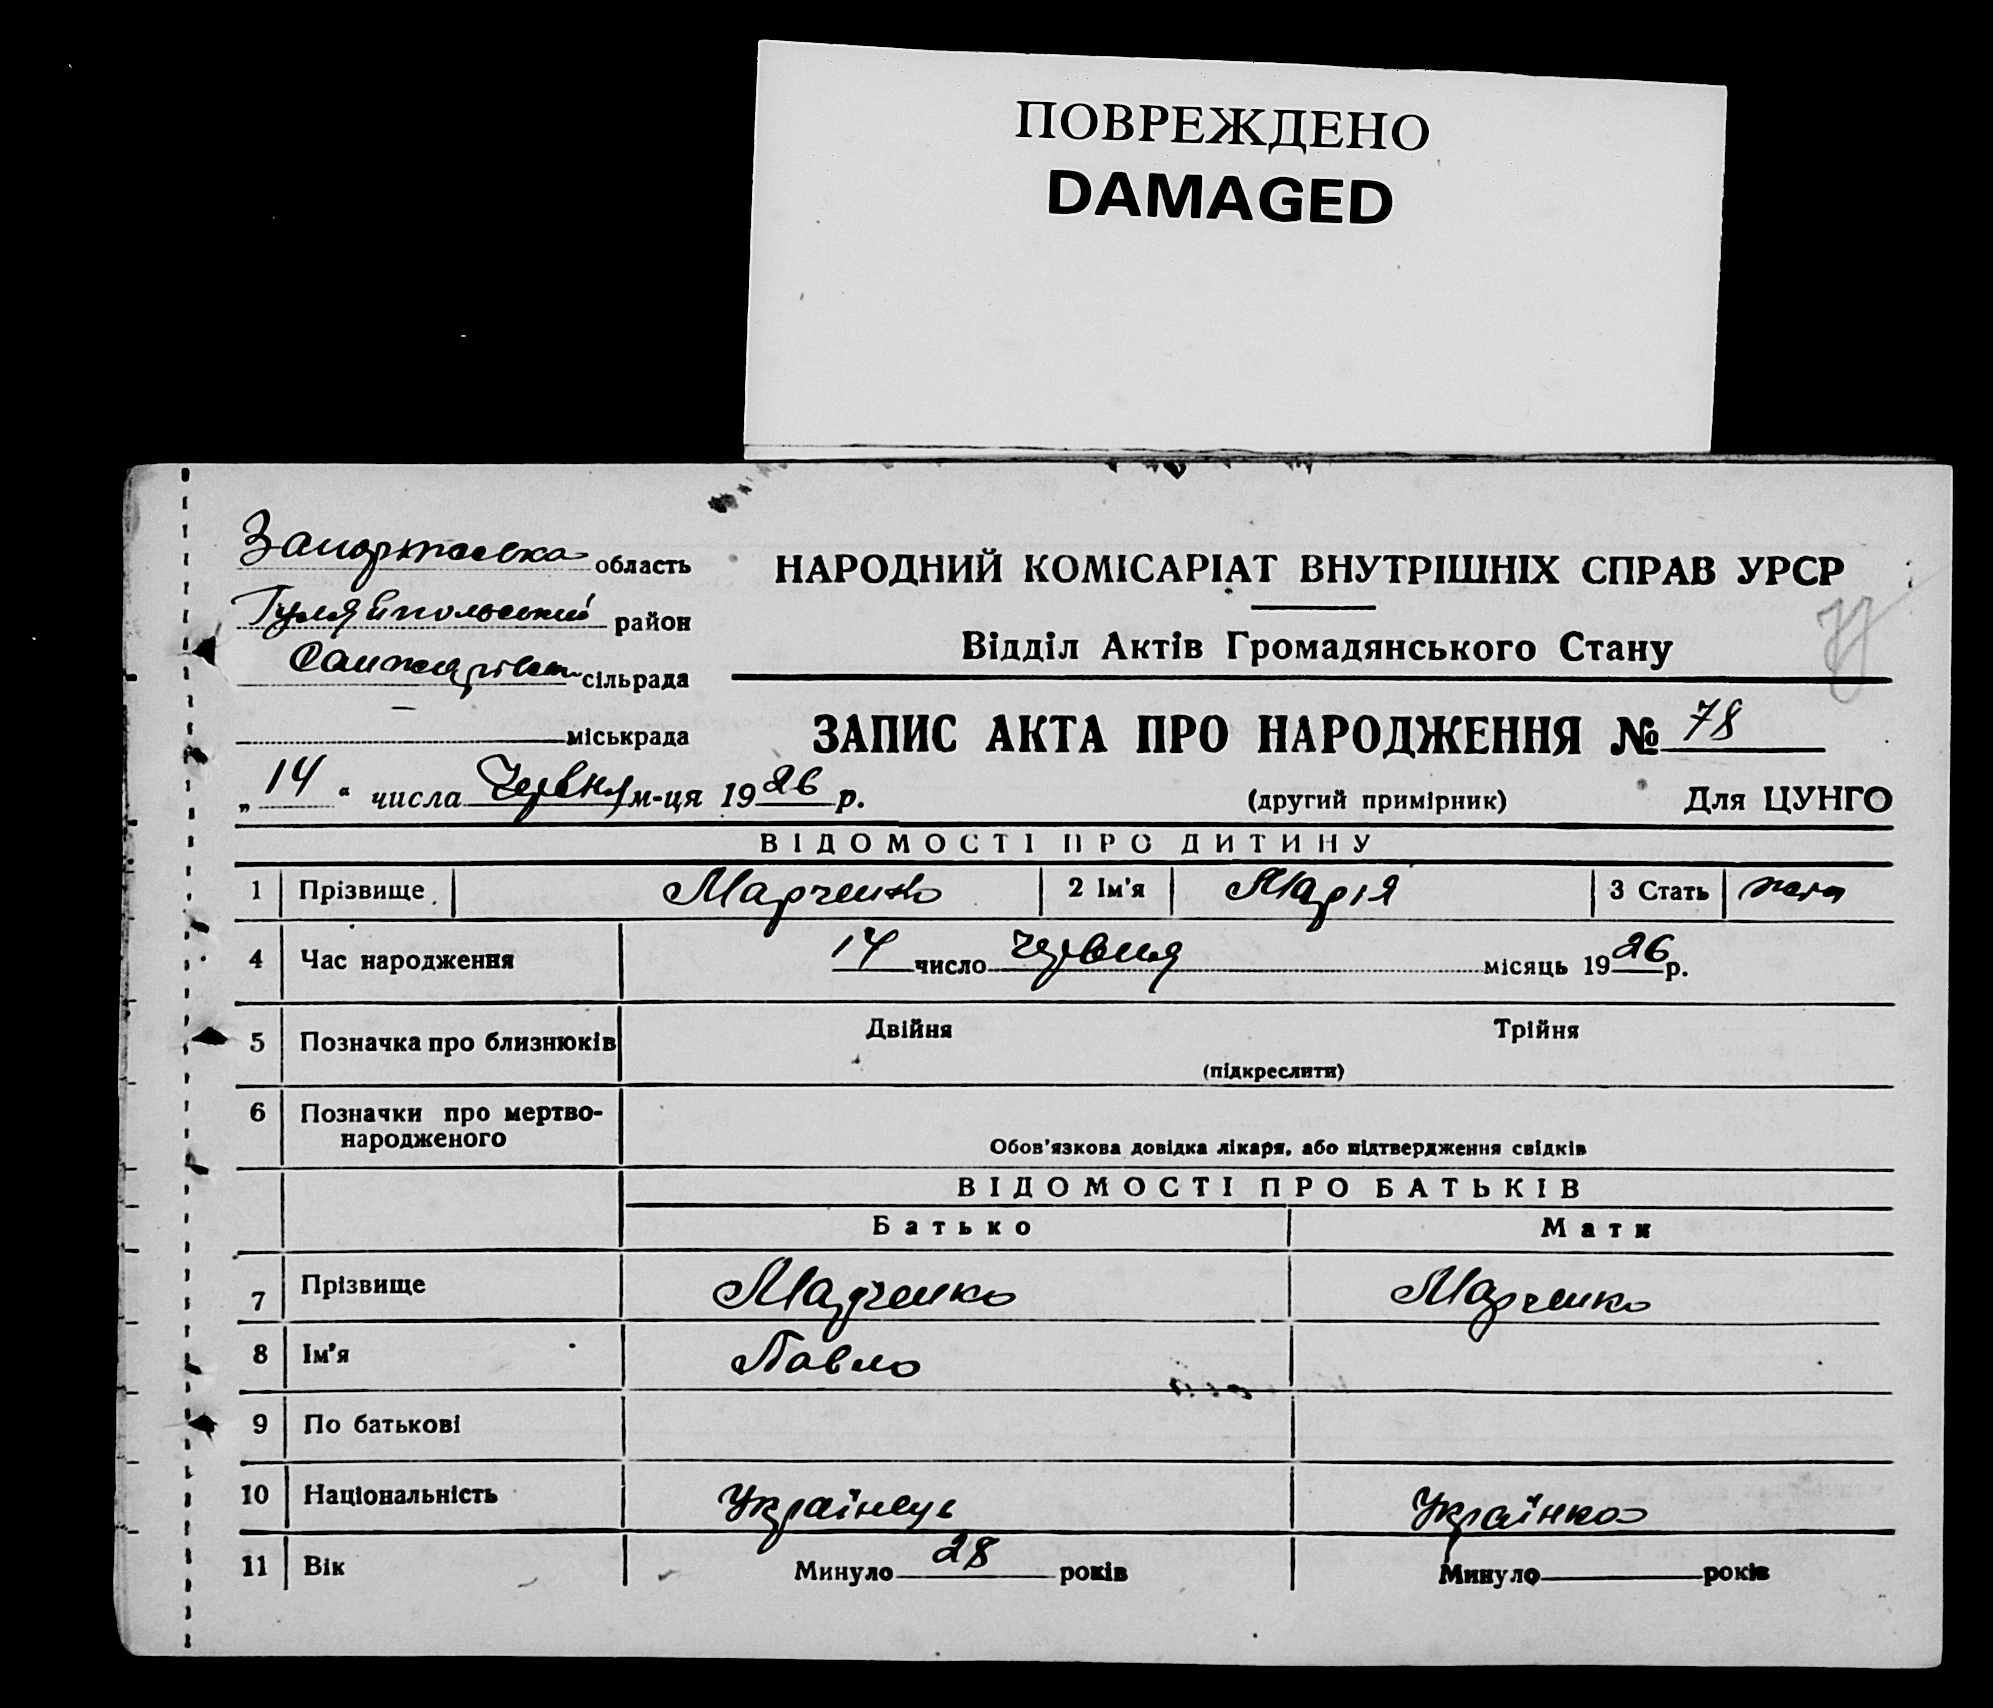 ПОВРЕЖДЕНО
DAMAGED
Запоріжська область
Гуляйпольський район
сільрада
міськрада
НАРОДНИЙ КОМІСАРІАТ ВНУТРІШНІХ СПРАВ УРСР
Відділ Актів Громадянського Стану
ЗАПИС АКТА ПРО НАРОДЖЕННЯ № 78
„14“ числа Червня м-ця 1926 р.
(другий примірник) Для ЦУНГО
ВІДОМОСТІ ПРО ДИТИНУ
1 Прізвище Марченко 2 Ім'я Марія 3 Стать
4 Час народження 14 число червня місяць 1926 р.
5 Позначка про близнюків Двійня Трійня
(підкреслити)
6 Позначки про мертво-
народженого
Обов'язкова довідка лікаря, або підтвердження свідків
ВІДОМОСТІ ПРО БАТЬКІВ
Батько Мати
7 Прізвище Марченко Марченко
8 Ім'я Павло
9 По батькові
10 Національність Українець Українка
11 Вік Минуло 28 років Минуло років